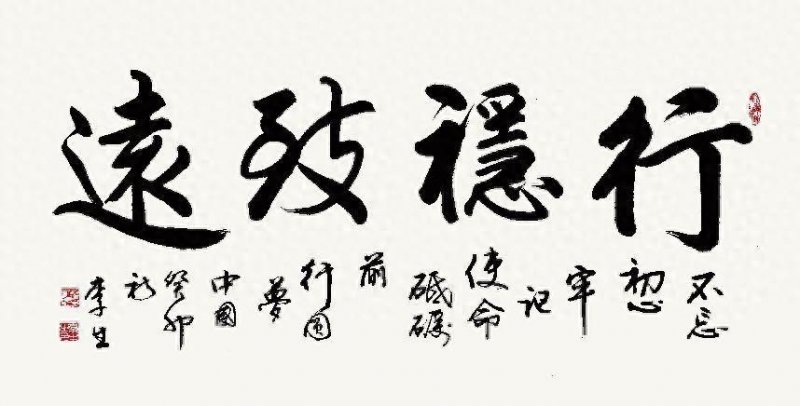 行穩致遠
不忘
初心
牢
记
使命
砥礪
前
行圆
夢
中國
癸卯
李生